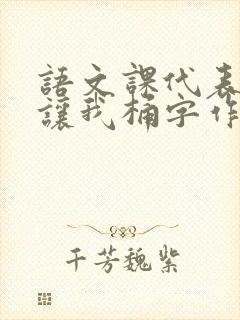 語文課代表
讓我桶字作
千芳魏紫